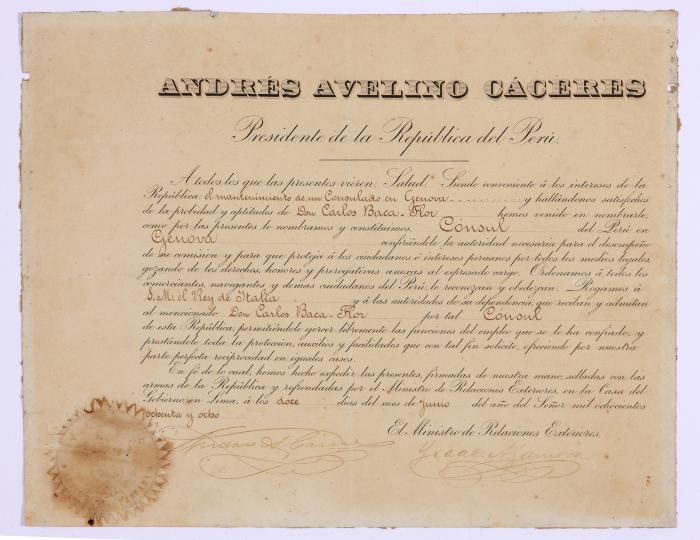 ANDRÉS AVELINO CÁCERES
Presidente de la República del Perú.
A todos los que las presentes vieren, Salud. Siendo conveniente á los intereses de la
República el mantenimiento de un Consulado en Genova y hallándonos satisfechos
de la probidad y aptitudes de Don Carlos Baca-Flor hemos venido en nombrarle,
como por las presentes le nombramos y constituimos. Cónsul del Perú en
Genova confiriéndole la autoridad necesaria para el desempeño
de su comisión y para que proteja á los ciudadanos é intereses peruanos por todos los medios legales,
gozando de los derechos, honores y prerogativas anexas al expresado cargo. Ordenamos á todos los
comerciantes, navegantes y demas ciudadanos del Perú, le reconozcan y obedezcan. Rogamos á
S. M. el Rey de Italia y á las autoridades de su dependencia, que reciban y admitan
al mencionado Don Carlos Baca-Flor por tal Cónsul
de esta República, permitiéndole ejercer libremente las funciones del empleo que se le ha confiado, y
prestándole toda la protección, auxilios y facilidades que con tal fin solicite, ofreciendo por nuestra
parte perfecta reciprocidad en iguales casos.
En fé de lo cual, hemos hecho expedir las presentes, firmadas de nuestra mano, selladas con las
armas de la República y refrendadas por el Ministro de Relaciones Exteriores, en la Casa del
Gobierno en Lima, á los doce días del mes de junio del año del Señor mil ochocientos
ochenta y ocho
El Ministro de Relaciones Exteriores.